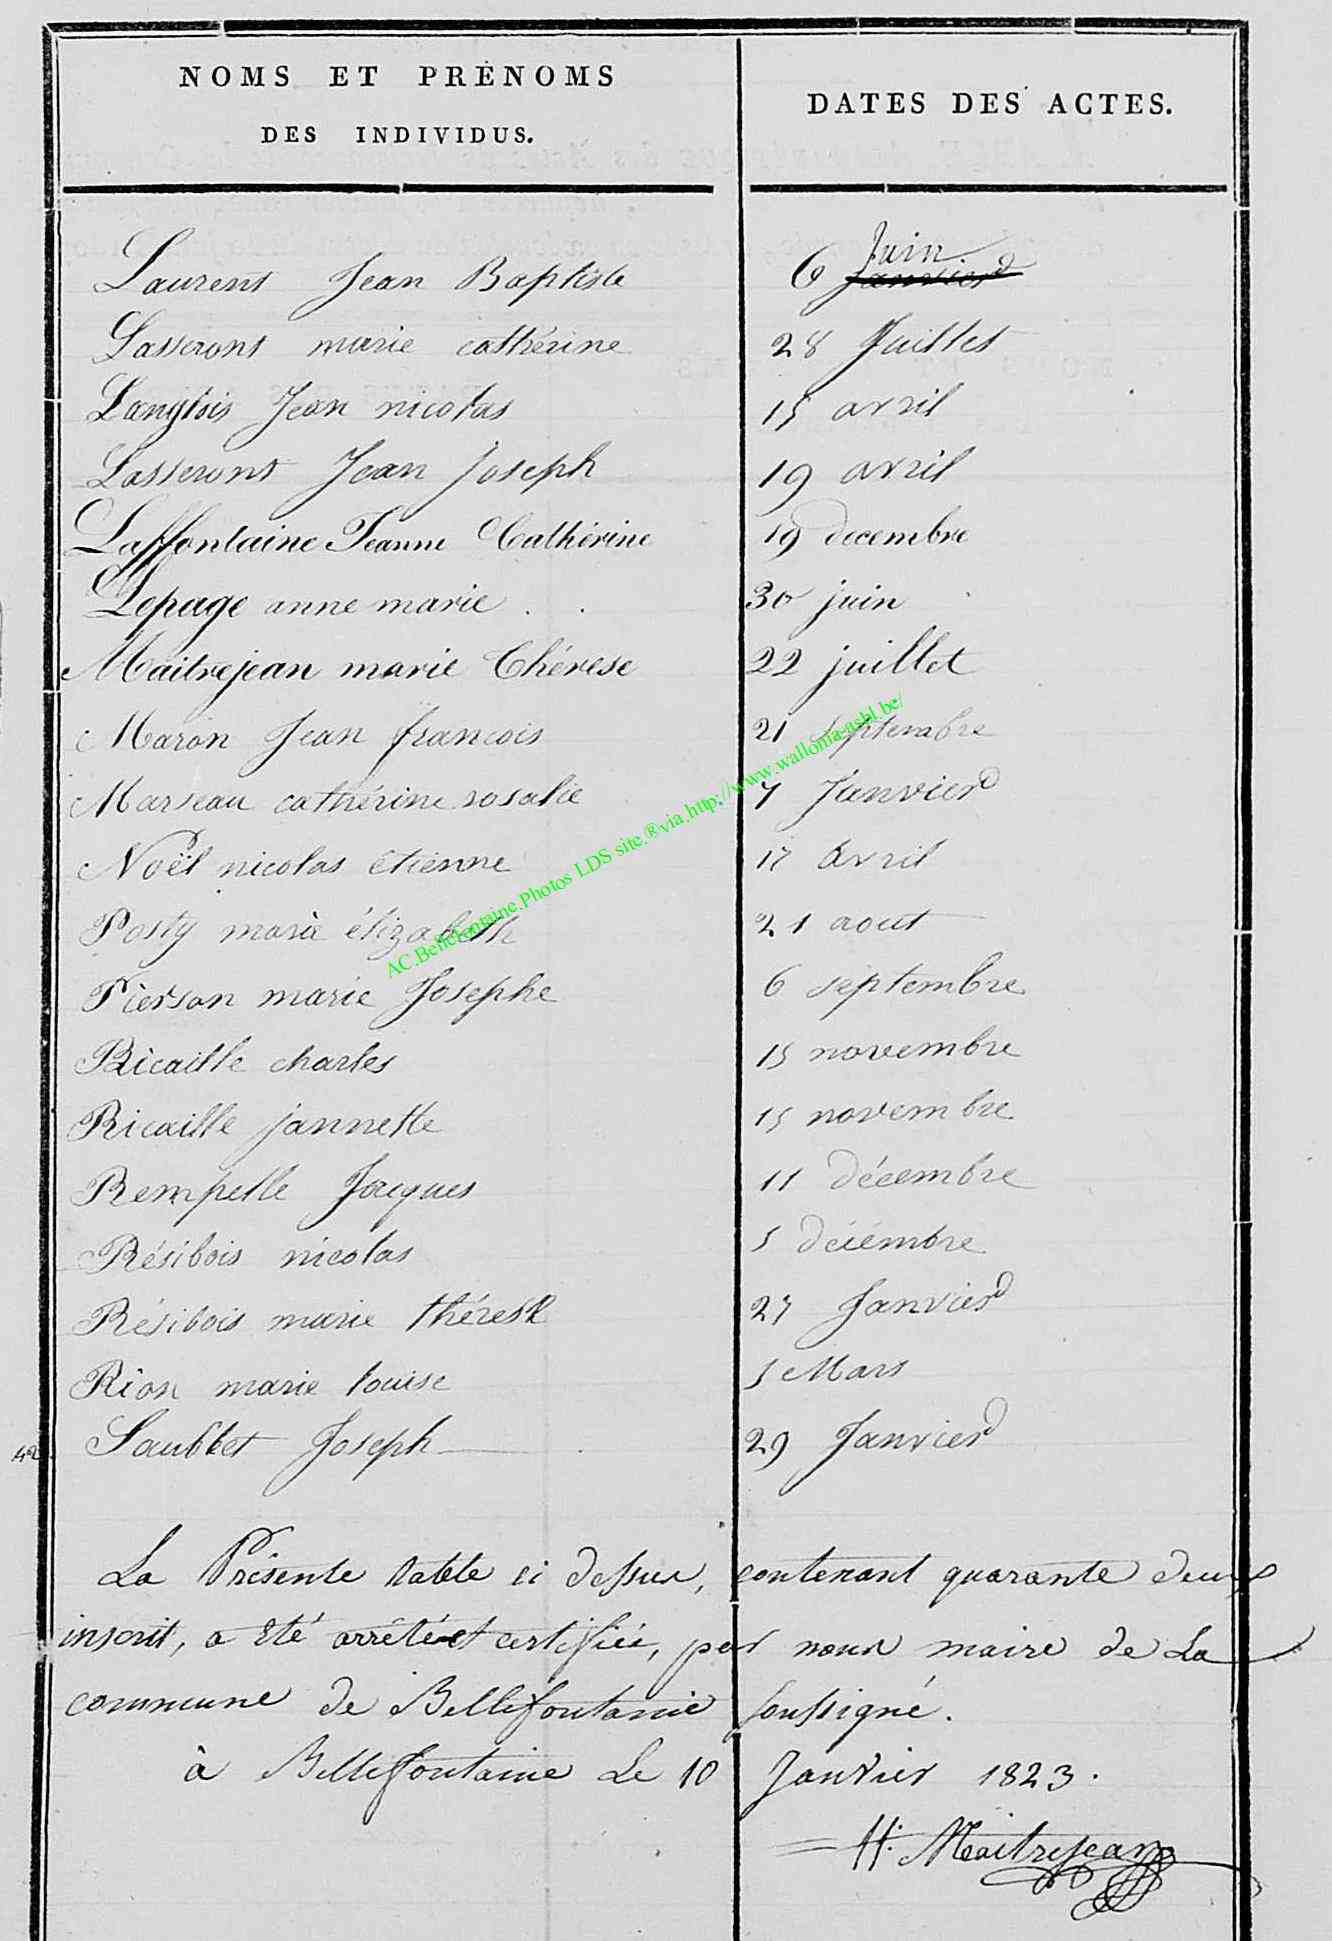 NOMS ET PRÉNOMS
DES INDIVIDUS.
DATES DES ACTES.
Laurent Jean Baptiste 6 Juin Janvier
Lasseront marie cathérine 28 Juillet
Langlois Jean nicolas 15 avril
Lasseront Jean Joseph 19 avril
Laffontaine Jeanne Cathérine 19 decembre
Lepage anne marie . . 30 juin
Maitrejean marie Thérese 22 juillet
Maron Jean francois 21 septembre
Marseau cathérine rosalie 7 Janvier
Noël nicolas étienne 17 avril
Posty marie élizabeth 21 aout
Pierson marie Josephe 6 septembre
Ricaille charles 15 novembre
Ricaille jannette 15 novembre
Rempelle Jacques 11 décembre
Résibois nicolas 5 décembre
Résibois marie thérese 27 Janvier
Rion marie louise 5 Mars
42 Saublet Joseph 29 Janvier
La Présente table ci dessus, contenant quarante deux
inscrit, a été arrêté et certifiée, par nous maire de La
commune de Bellefontaine soussigné.
à Bellefontaine Le 10 Janvier 1823.
H. Maitrejean
AC.Bellefontaine.Photos LDS site.®via.http://www.wallonia-asbl.be/